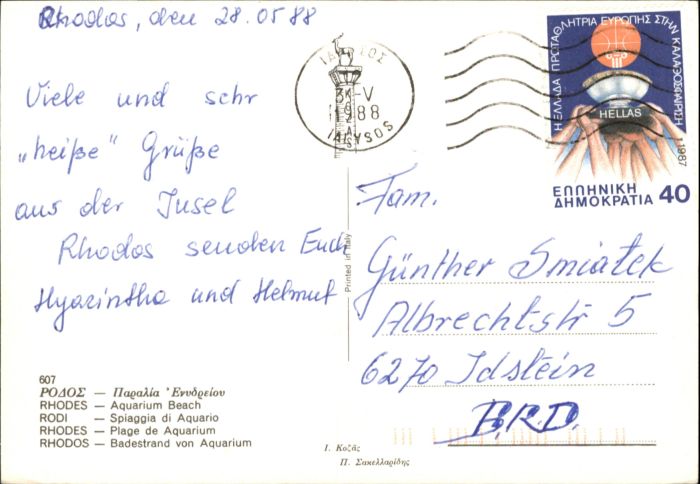 Rhodos, den 28.05.88
Viele und sehr
„heiße" Grüße
aus der Insel
Rhodos senden Euch
Hyazintha und Helmut
607
ΡΟΔΟΣ — Παραλία Ἐνυδρείου
RHODES — Aquarium Beach
RODI — Spiaggia di Aquario
RHODES — Plage de Aquarium
RHODOS — Badestrand von Aquarium
Ι. Κοζᾶς
Π. Σακελλαρίδης
Printed in Italy
ΙΑΛΥΣΟΣ
-V
88
IALYSOS
Η ΕΛΛΑΔΑ ΠΡΩΤΑΘΛΗΤΡΙΑ ΕΥΡΩΠΗΣ ΣΤΗΝ ΚΑΛΑΘΟΣΦΑΙΡΙΣΗ
HELLAS
1987
ΕΛΛΗΝΙΚΗ
ΔΗΜΟΚΡΑΤΙΑ 40
Fam.
Günther Smiatek
Albrechtstr 5
6270 Idstein
B.R.D.